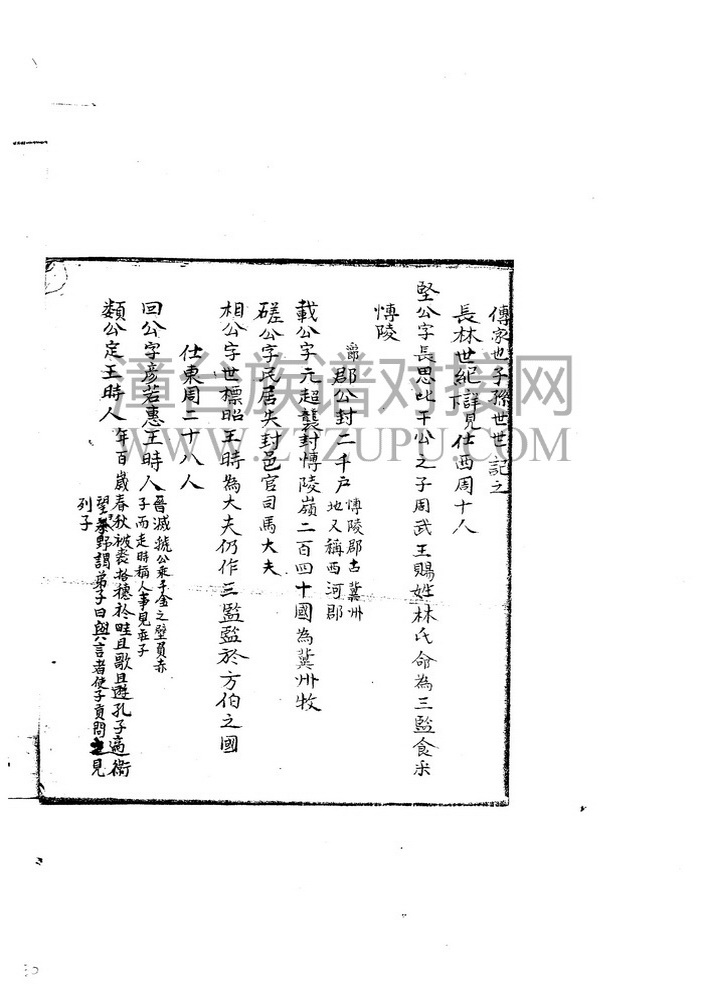 傳家也子孫世世記之
長林世紀下詳見仕西周十人
堅公字長思比干公之子周武王賜姓林氏命為三監食采
愽陵
郡公封二千戶 愽陵郡古冀州
地又稱西河郡
載公字元超襲封愽陵嶺二百四十國為冀州牧
磋公字民居失封邑官司馬大夫
相公字世標昭王時為大夫仍作三監監於方伯之國
仕東周二十八人
回公字彥若惠王時人 晉滅虢公乘千金之璧負赤
子而走時稱人事見莊子
類公定王時人 年百歲春秋被裘拾穗於畦且歌且遊孔子適衛
望野謂弟子曰與言者使子貢問之見
列子
漳台族谱对接网
WWW.ZTZUPU.COM